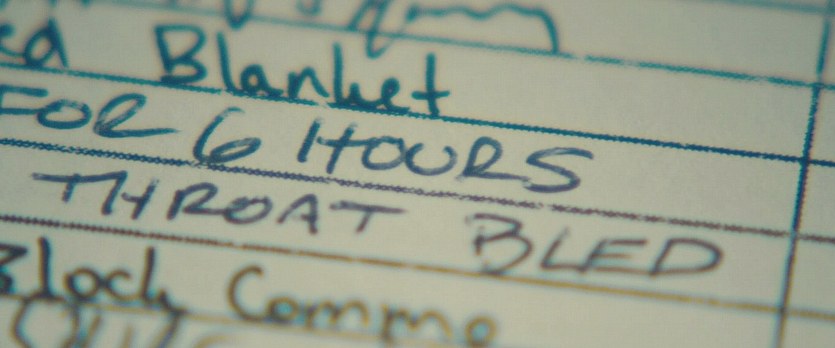 Blanket
FOR 6 HOURS
THROAT BLED
Block Commo